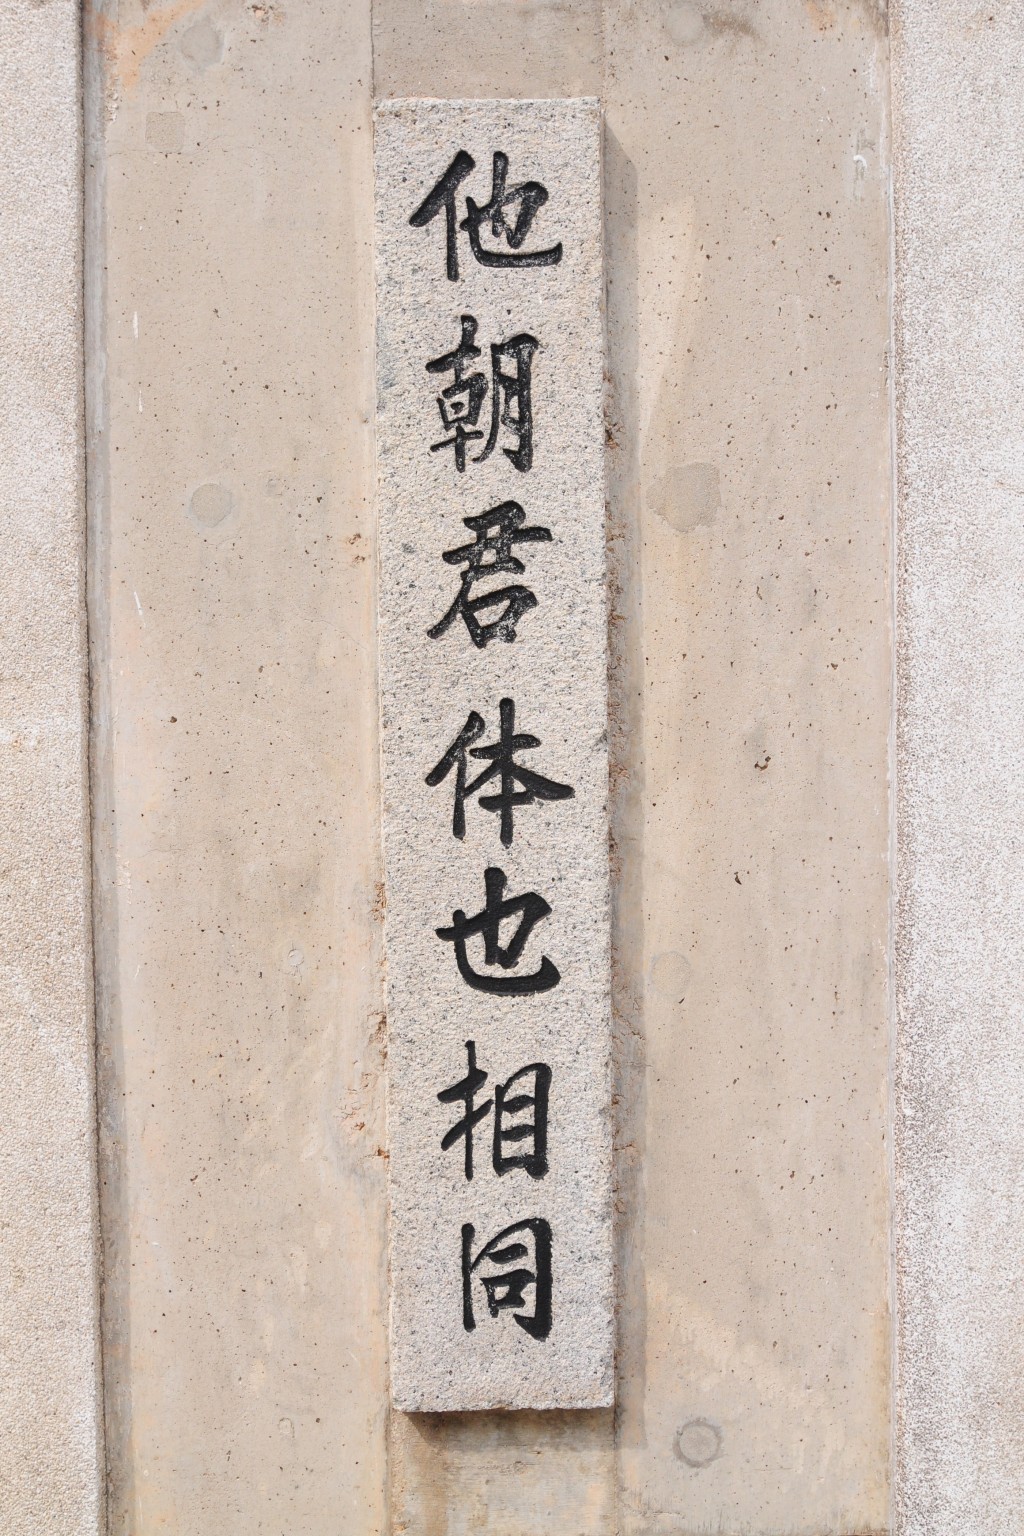 他朝君体也相同